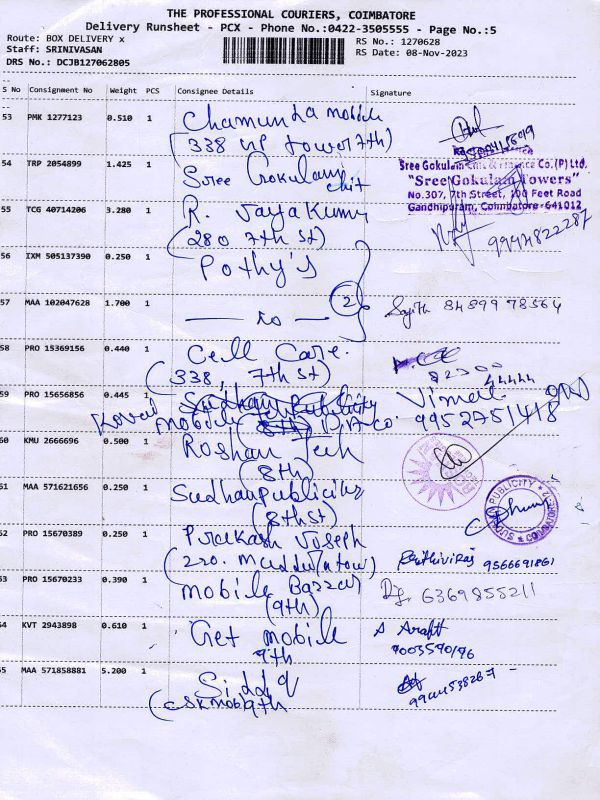 THE PROFESSIONAL COURIERS, COIMBATORE
Delivery Runsheet - PCX - Phone No.:0422-3505555 - Page No.:5
Route: BOX DELIVERY x
RS No.: 1270628
Staff: SRINIVASAN
RS Date: 08-Nov-2023
DRS No.: DCJB127062805
S No Consignment No Weight PCS Consignee Details Signature
53 PMK 1277123 0.510 1 Chamunda mobile
(338 VP tower 7th)
54 TRP 2054899 1.425 1 Sree Gokulam chit
Sree Gokulam Chit & Finance Co.(P) Ltd.
"Sree Gokulam Towers"
No.307, 7th Street, 100 Feet Road
Gandhipuram, Coimbatore-641012
55 TCG 40714206 3.280 1 R. Jayakumar
(280 7th st) 9944822287
56 IXM 505137390 0.250 1 Pothy's
57 MAA 102047628 1.700 1 — do — 2 Sajith 84899 78564
58 PRO 15369156 0.440 1 Cell Care.
(338, 7th st)
59 PRO 15656856 0.445 1 Vimal
Kovai mobile 9952751418
60 KMU 2666696 0.500 1 Roshan Tech
(8th)
61 MAA 571621656 0.250 1 Sudhan publicity
(8th st)
SUDHAN PUBLICITY COIMBATORE
62 PRO 15670389 0.250 1 Prakash Joseph
Prithiviraj 9566691861
63 PRO 15670233 0.390 1 mobile Bazzar
(9th) 6369855211
64 KVT 2943898 0.610 1 Get mobile
9th
A Arafit
65 MAA 571858881 5.200 1 Siddiq
(CSK mob 9th